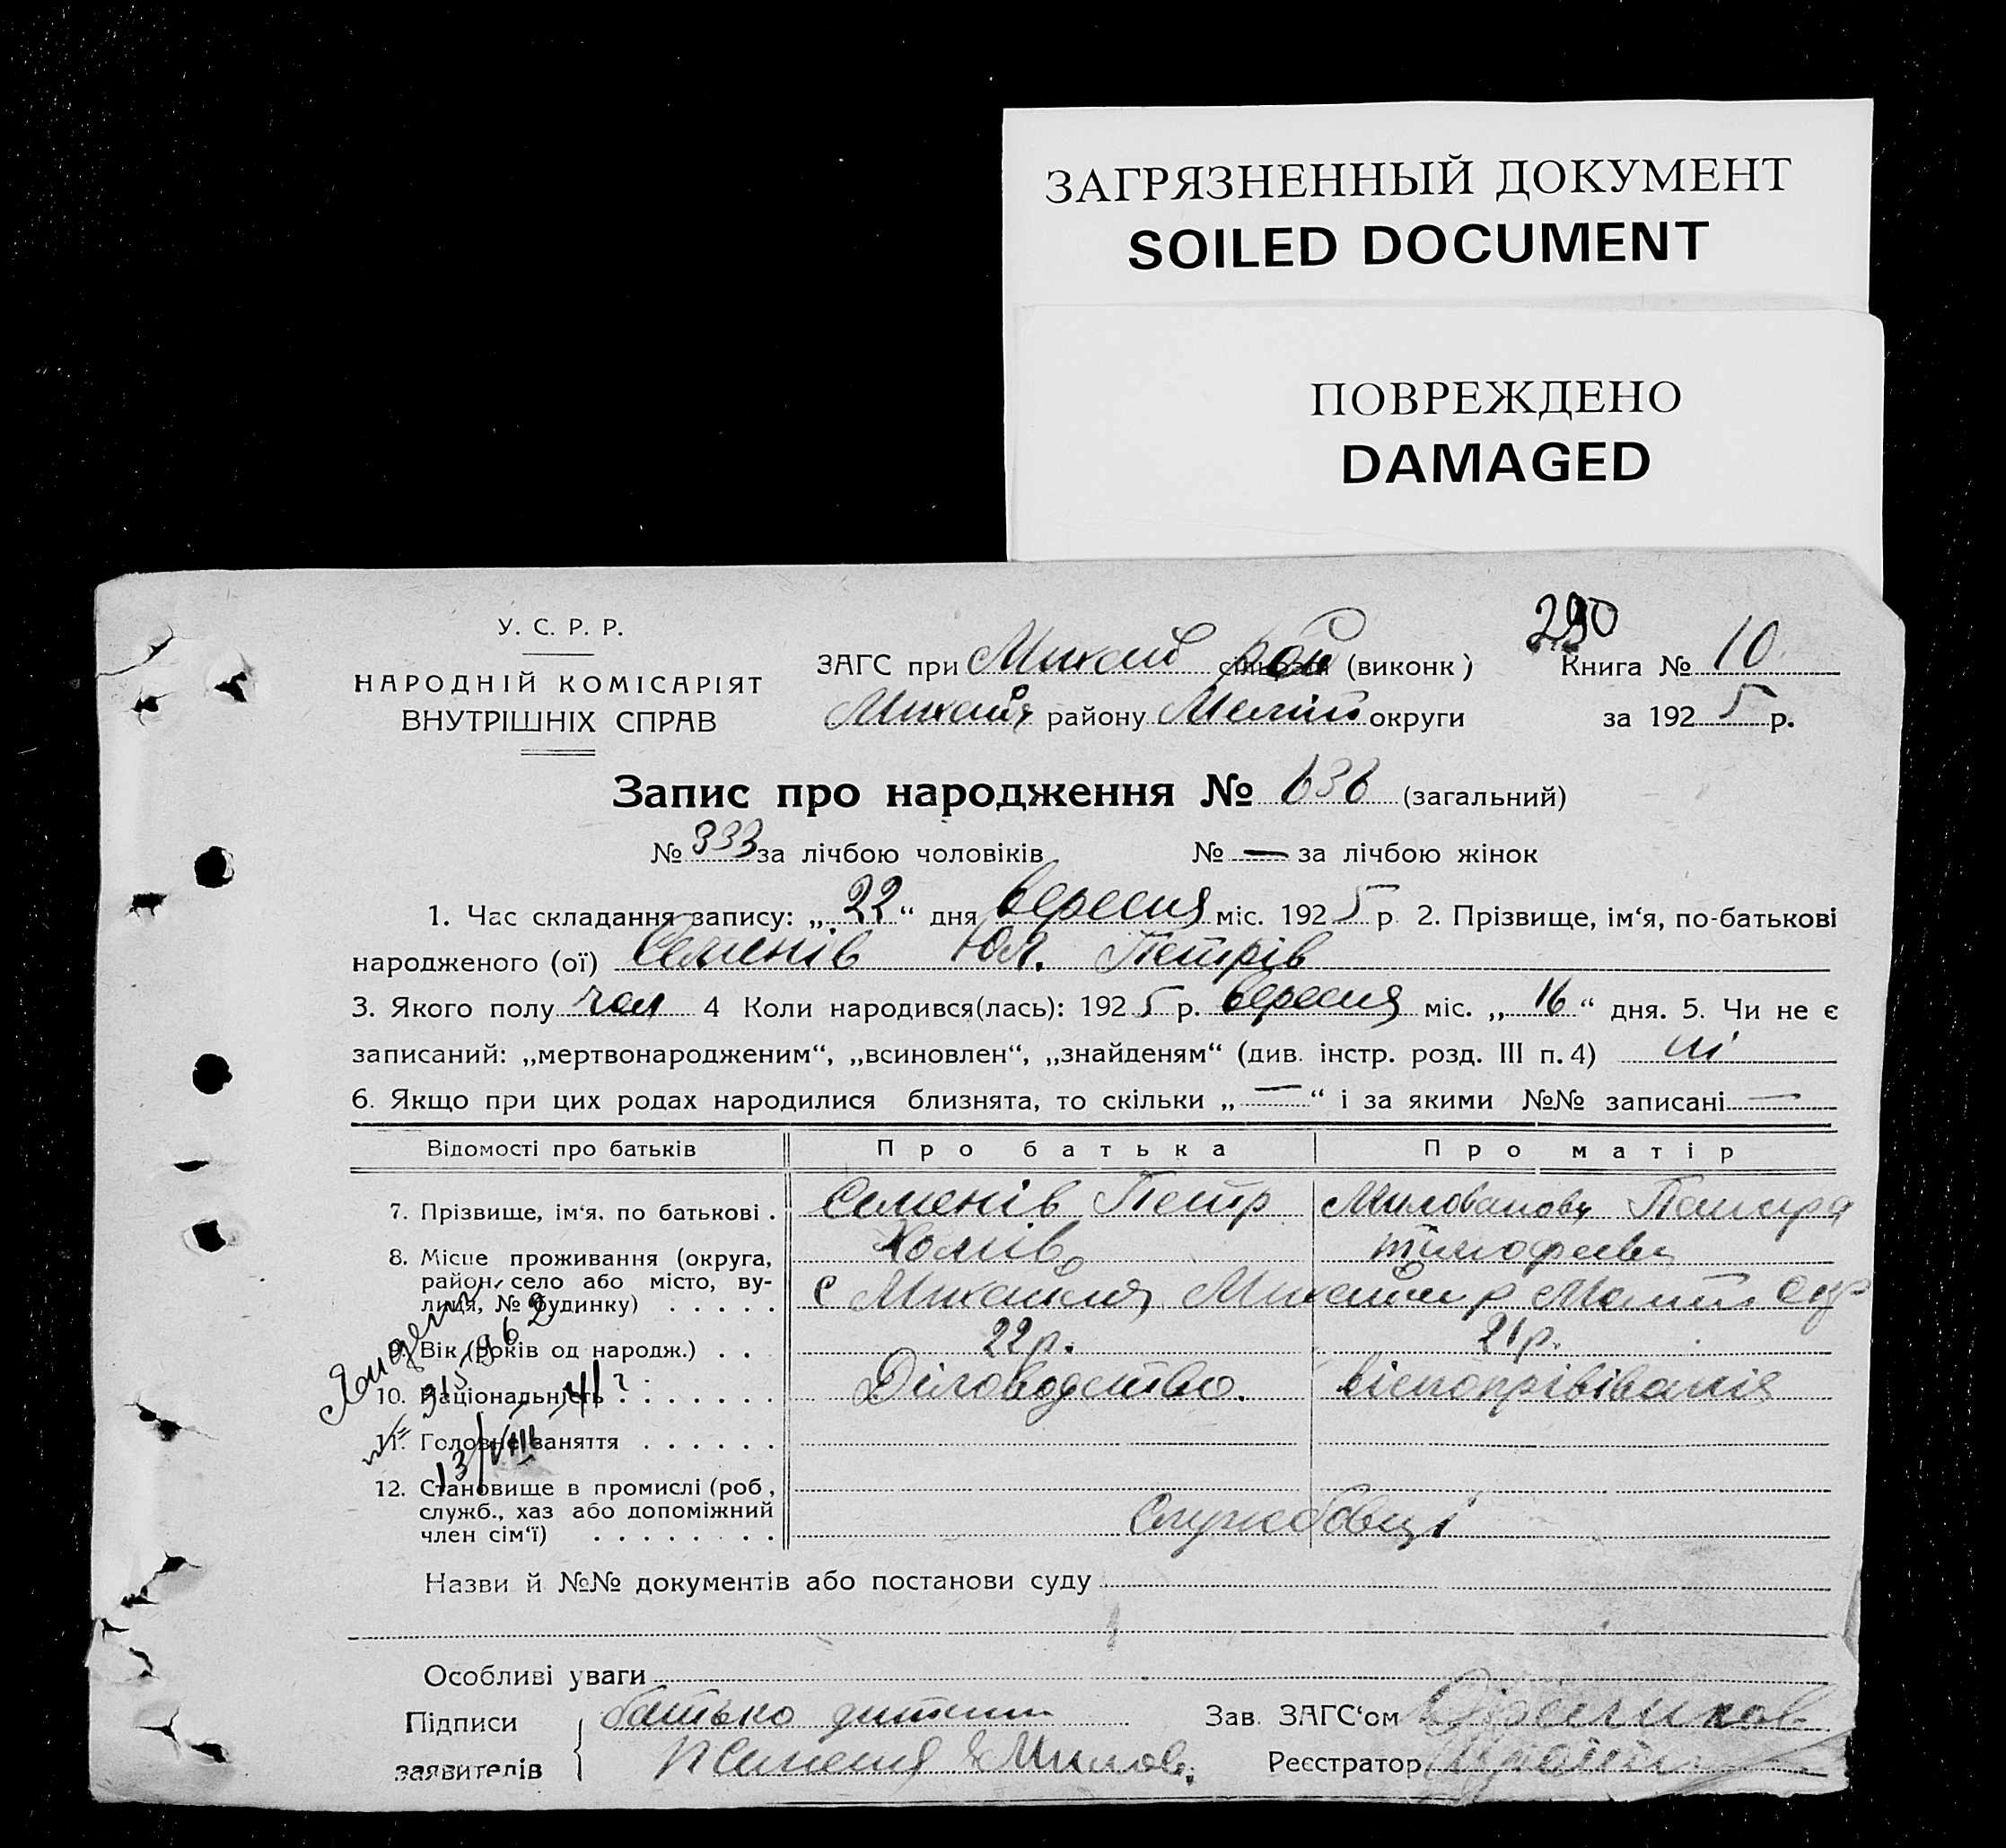 ЗАГРЯЗНЕННЫЙ ДОКУМЕНТ
SOILED DOCUMENT
ПОВРЕЖДЕНО
DAMAGED
290
У. С. Р. Р.
НАРОДНІЙ КОМІСАРІЯТ
ВНУТРІШНІХ СПРАВ
ЗАГС при Михайл рай (виконк) Книга № 10
району округи за 1925 р.
Запис про народження № 636 (загальний)
№ 333 за лічбою чоловіків № — за лічбою жінок
1. Час складання запису: „22“ дня вересня міс. 1925 р 2. Прізвище, ім‘я, по-батькові
народженого (ої) Семенів Юл. Петрів
3. Якого полу чол 4 Коли народився(лась): 1925 р. вересня міс. „16“ дня. 5. Чи не є
записаний: „мертвонародженим“, „всиновлен“, „знайденям“ (див. інстр. розд. III п. 4) ні
6. Якщо при цих родах народилися близнята, то скільки „—“ і за якими №№ записані —
Відомості про батьків Про батька Про матір
7. Прізвище, ім‘я, по батькові . Семенів Петр Милованова
Хомів
8. Місце проживання (округа,
район, село або місто, ву-
лиця, № будинку) . . . . . с Михайлия
9. Вік (років од народж.) . . 22р. 21р.
10. Національність . . . . . . . Діловодство. віспопрівіванія
11. Головне заняття . . . . . .
12. Становище в промислі (роб,
служб., хаз або допоміжний
член сім‘ї) . . . . . . . Службовці
13/VIII 41 г
Назви й №№ документів або постанови суду
Особливі уваги
Підписи батько дитини Зав. ЗАГС‘ом
заявителів Реєстратор